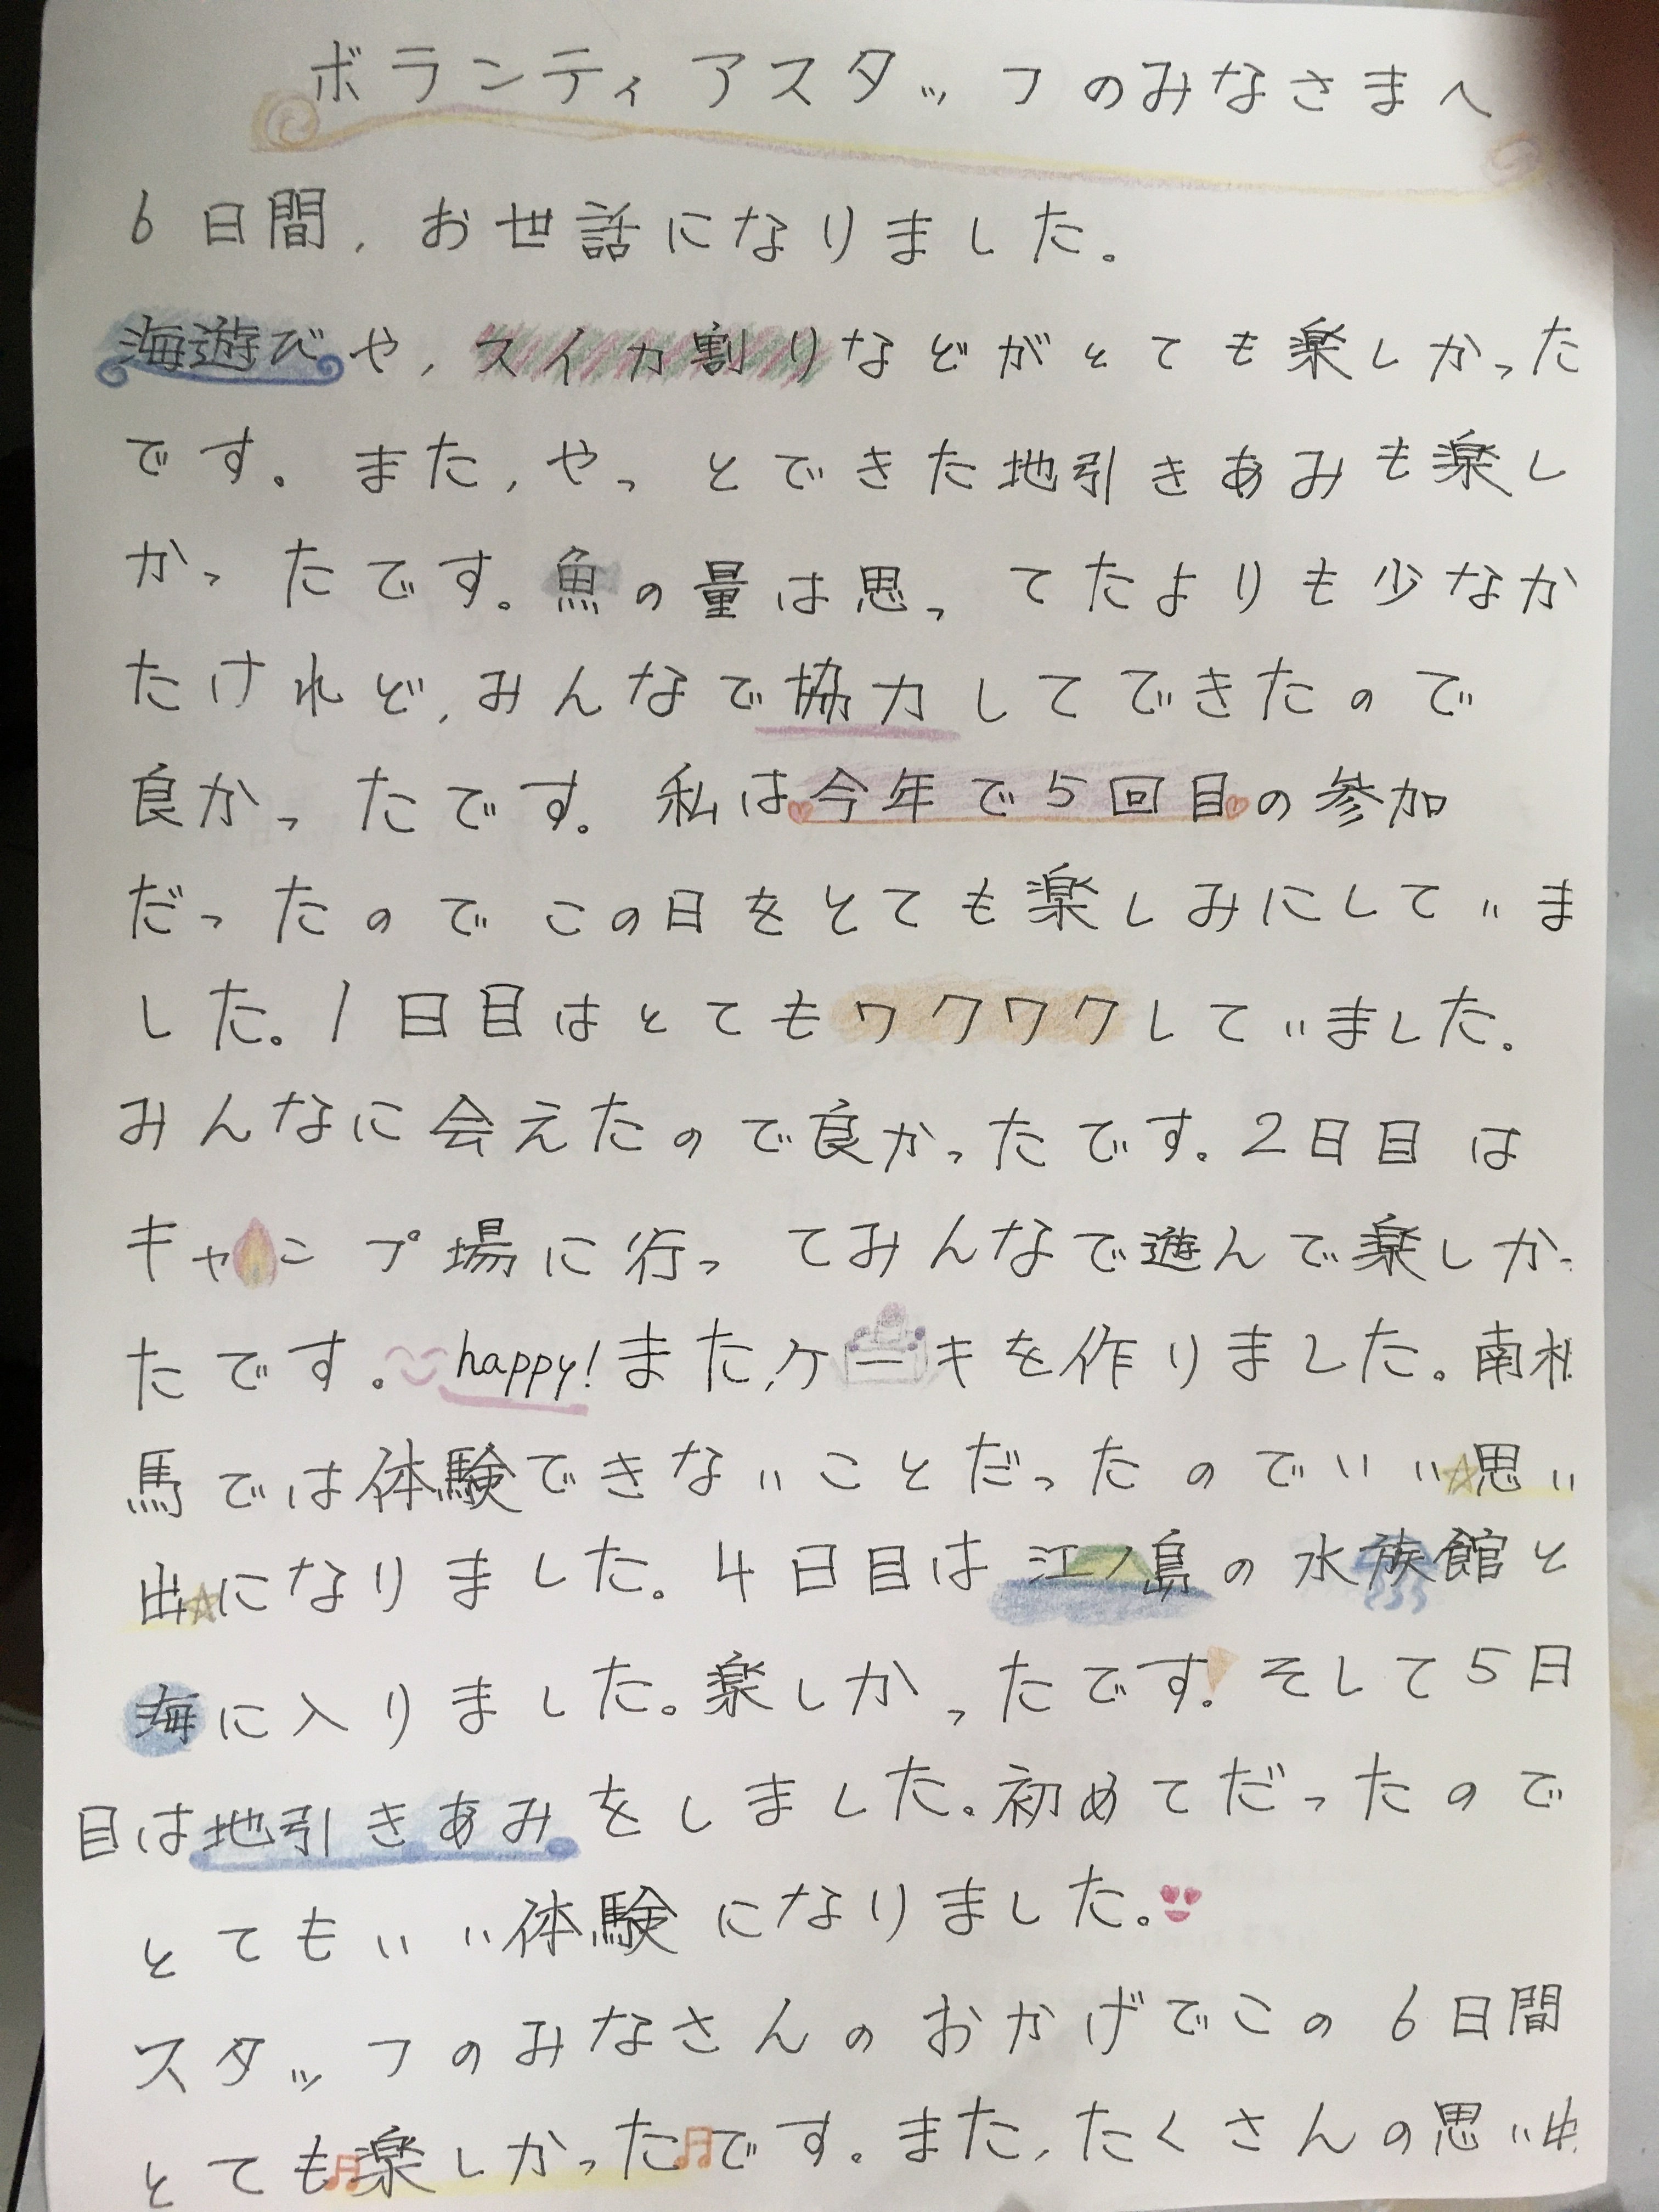 ボランティアスタッフのみなさまへ
6日間、お世話になりました。
海遊びや、スイカ割りなどがとても楽しかった
です。また、やっとできた地引きあみも楽し
かったです。魚の量は思ってたよりも少なか
たけれど、みんなで協力してできたので
良かったです。私は今年で5回目の参加
だったのでこの日をとても楽しみにしていま
した。1日目はとてもワクワクしていました。
みんなに会えたので良かったです。2日目は
キャンプ場に行ってみんなで遊んで楽しかっ
たです。happy!また、ケーキを作りました。南相
馬では体験できないことだったのでいい思い
出になりました。4日目は江ノ島の水族館と
海に入りました。楽しかったです!そして5日
目は地引きあみをしました。初めてだったので
とてもいい体験になりました。
スタッフのみなさんのおかげでこの6日間
とても楽しかったです。また、たくさんの思い出